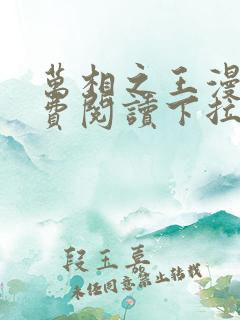 萬相之王漫
費閱讀下拉
段玉嘉
未经同意禁止转载